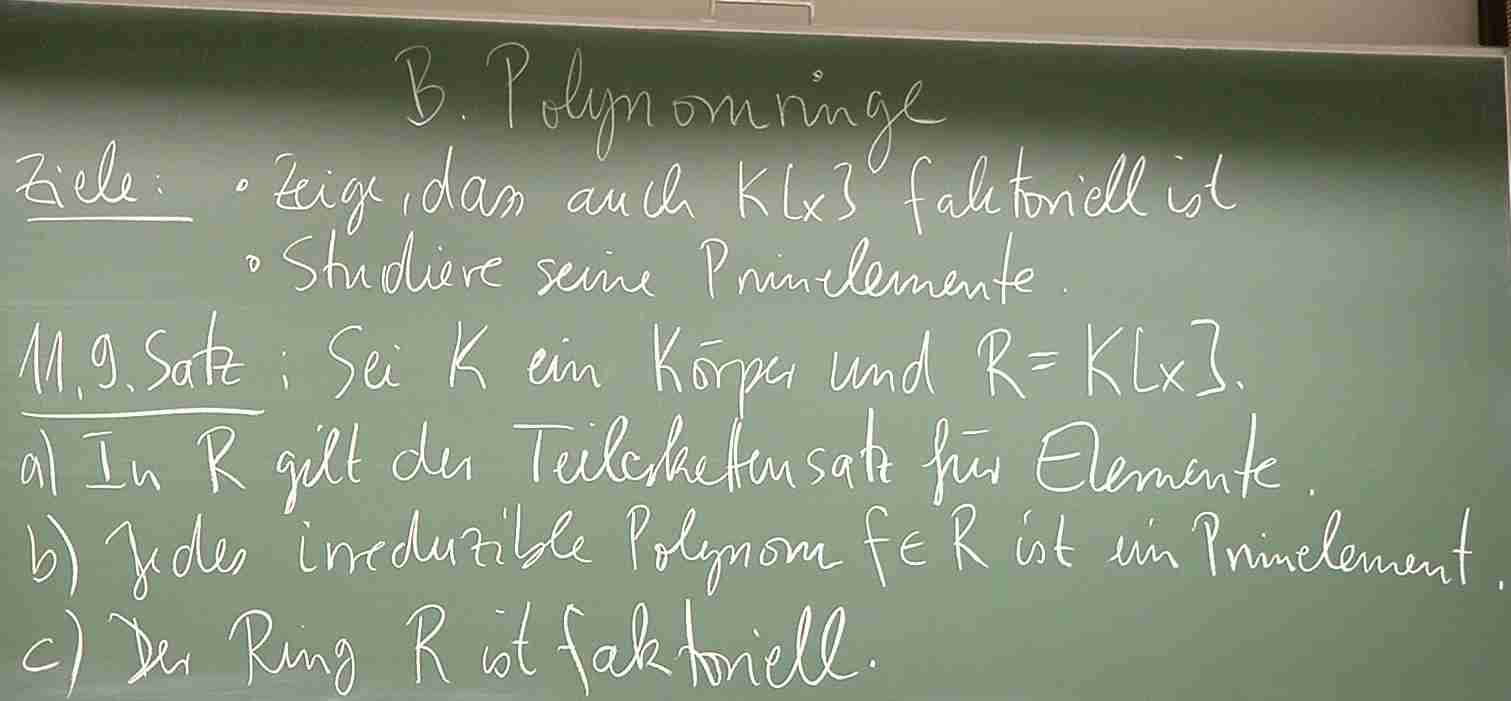 B. Polynomringe
Ziele: • Zeige, dass auch K[x] faktoriell ist
• Studiere seine Primelemente.
11.9. Satz: Sei K ein Körper und R = K[x].
a) In R gilt der Teilerkettensatz für Elemente.
b) Jedes irreduzible Polynom f ∈ R ist ein Primelement.
c) Der Ring R ist faktoriell.